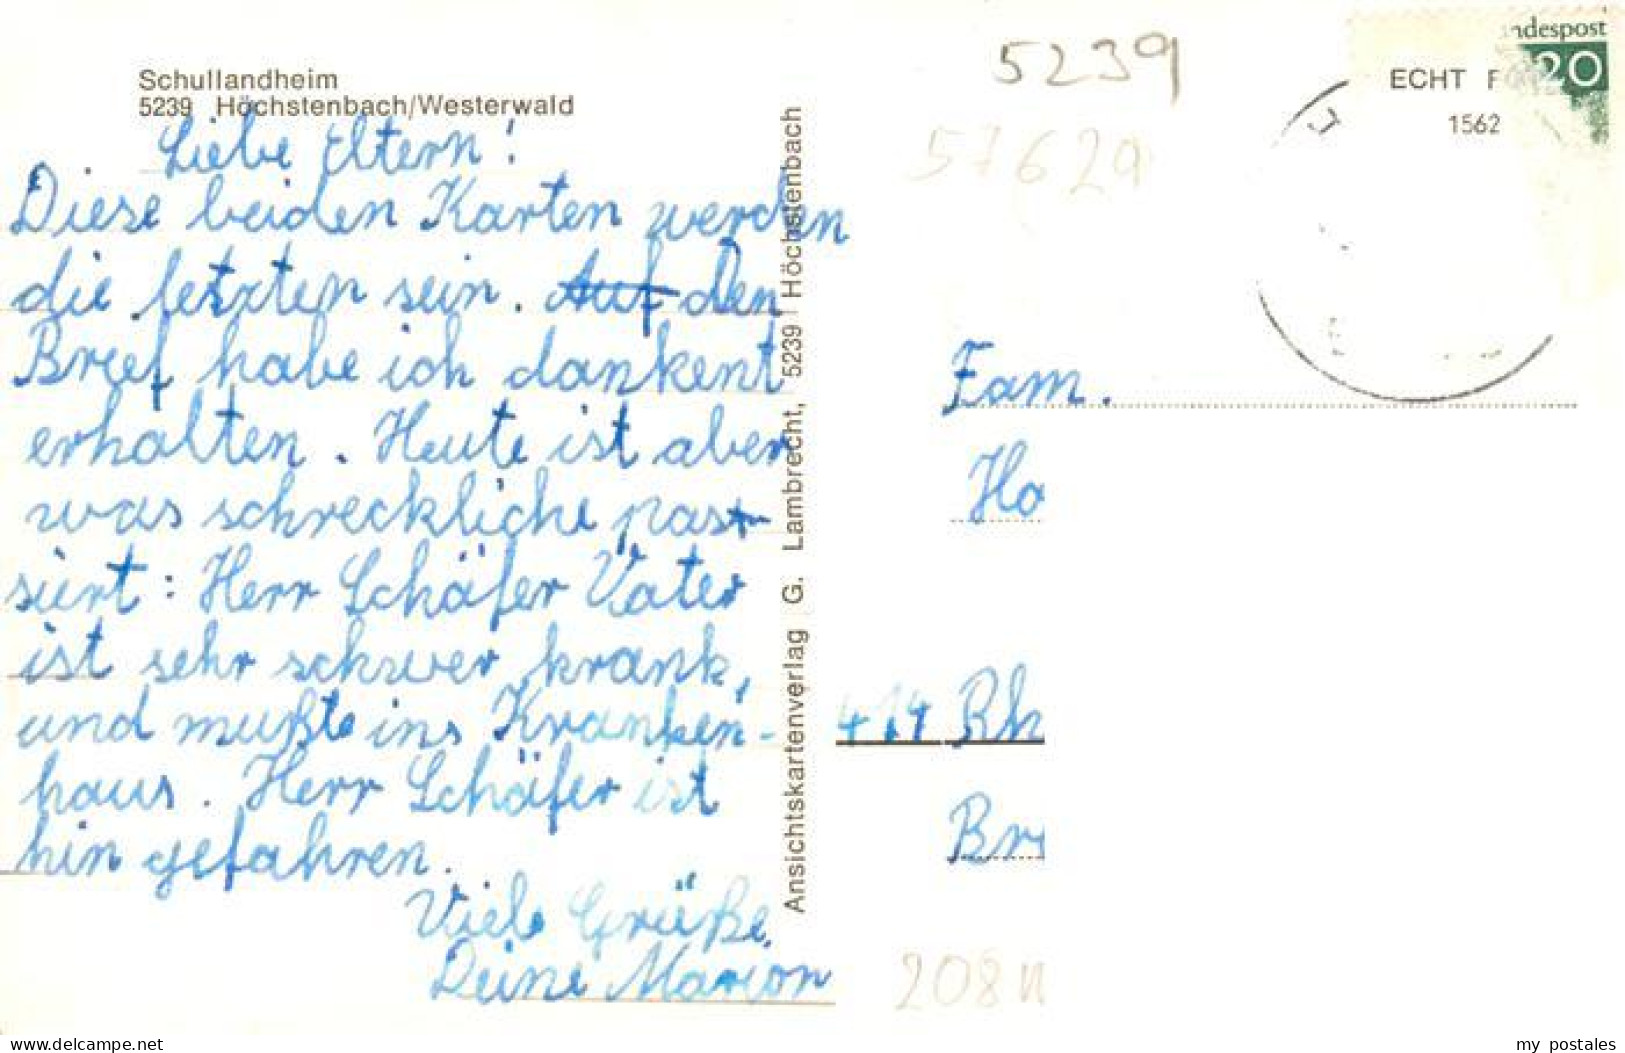 Schullandheim
5239 Höchstenbach/Westerwald
Liebe Eltern!
Diese beiden Karten werden
die letzten sein. Auf Den
Brief habe ich dankent
erhalten. Heute ist aber
was schreckliche pas
siert: Herr Schäfer Vater
ist sehr schwer krank,
und mußte ins Kranken-
haus. Herr Schäfer ist
hin gefahren.
Viele Grüße
Deine Marion
Ansichtskartenverlag G. Lambrecht, 5239 Höchstenbach
5239
57629
ndespost
20
ECHT F
1562
Fam.
Ho
414 Rh
Br
208
www.delcampe.net
my postales